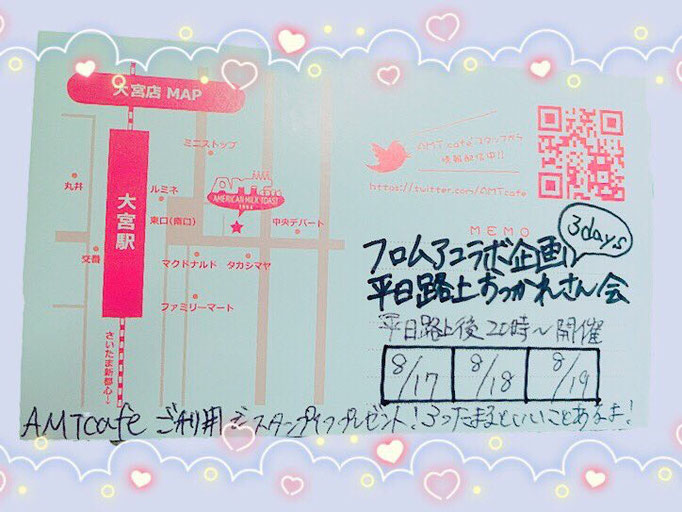 大宮店 MAP
ミニストップ
丸井
大宮駅
ルミネ
東口(南口)
AMT cafe
AMERICAN MILK TOAST
1994
中央デパート
交番
マクドナルド
タカシマヤ
ファミリーマート
さいたま新都心
AMT cafe スタッフから
情報配信中!!
https://twitter.com/AMTcafe
MEMO
3days
フロムアコラボ企画!!
平日路上おつかれさん会
平日路上後20時〜開催
8/17 8/18 8/19
AMTcafe ご利用でスタンプイフプレゼント! 3つたまるといいことあるよ!